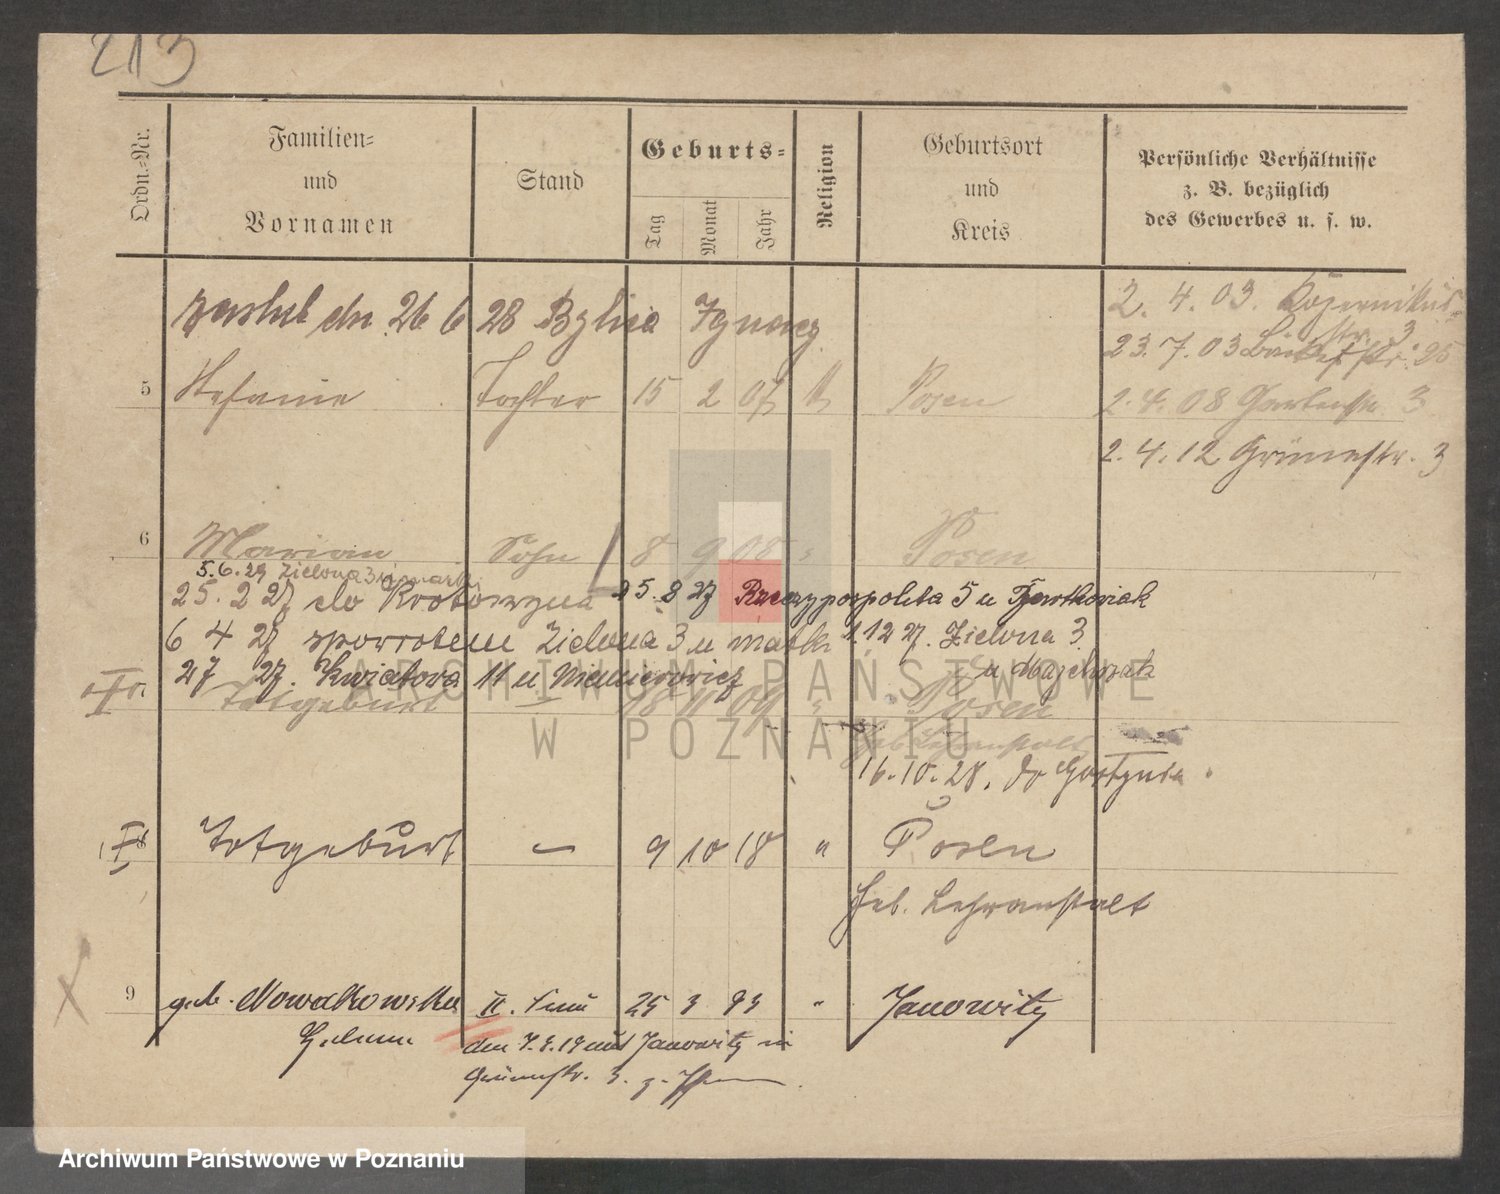 213
Ordn.-Nr.
Familien-
und
Vornamen
Stand
Geburts-
Tag
Monat
Jahr
Religion
Geburtsort
und
Kreis
Persönliche Verhältnisse
z. B. bezüglich
des Gewerbes u. s. w.
26 6 28 Ignacy
2. 4. 03. Kopernikus-
str. 3
23. 7. 03 Bäckerstr. 25
5 Stefanie Tochter 15 2 07 Posen
2. 4. 08 Gartenstr. 3
2. 4. 12 Grünestr. 3
6 Marian Sohn 8 9 08 " Posen
5.6.29 Zielona 3 u matki
25. 2 27 do Krotoszyna 25. 8 27 Rzeczypospolita 5 u
6 4 27 zpowrotem Zielona 3 u matki 1.12 27. Zielona 3
27 27. Kwiatowa 11 u
Totgeburt — 18 11 09 " Posen
Heb. Lehranstalt
16.10.28. do Gostynia
Totgeburt — 9 10 18 " Posen
Heb. Lehranstalt
9 geb. Nowakowska II. Frau 25 3 93 " Janowitz
Helene
den 7.9.19 aus Janowitz in
Grünestr. 3. z.
ARCHIWUM PAŃSTWOWE
W POZNANIU
Archiwum Państwowe w Poznaniu